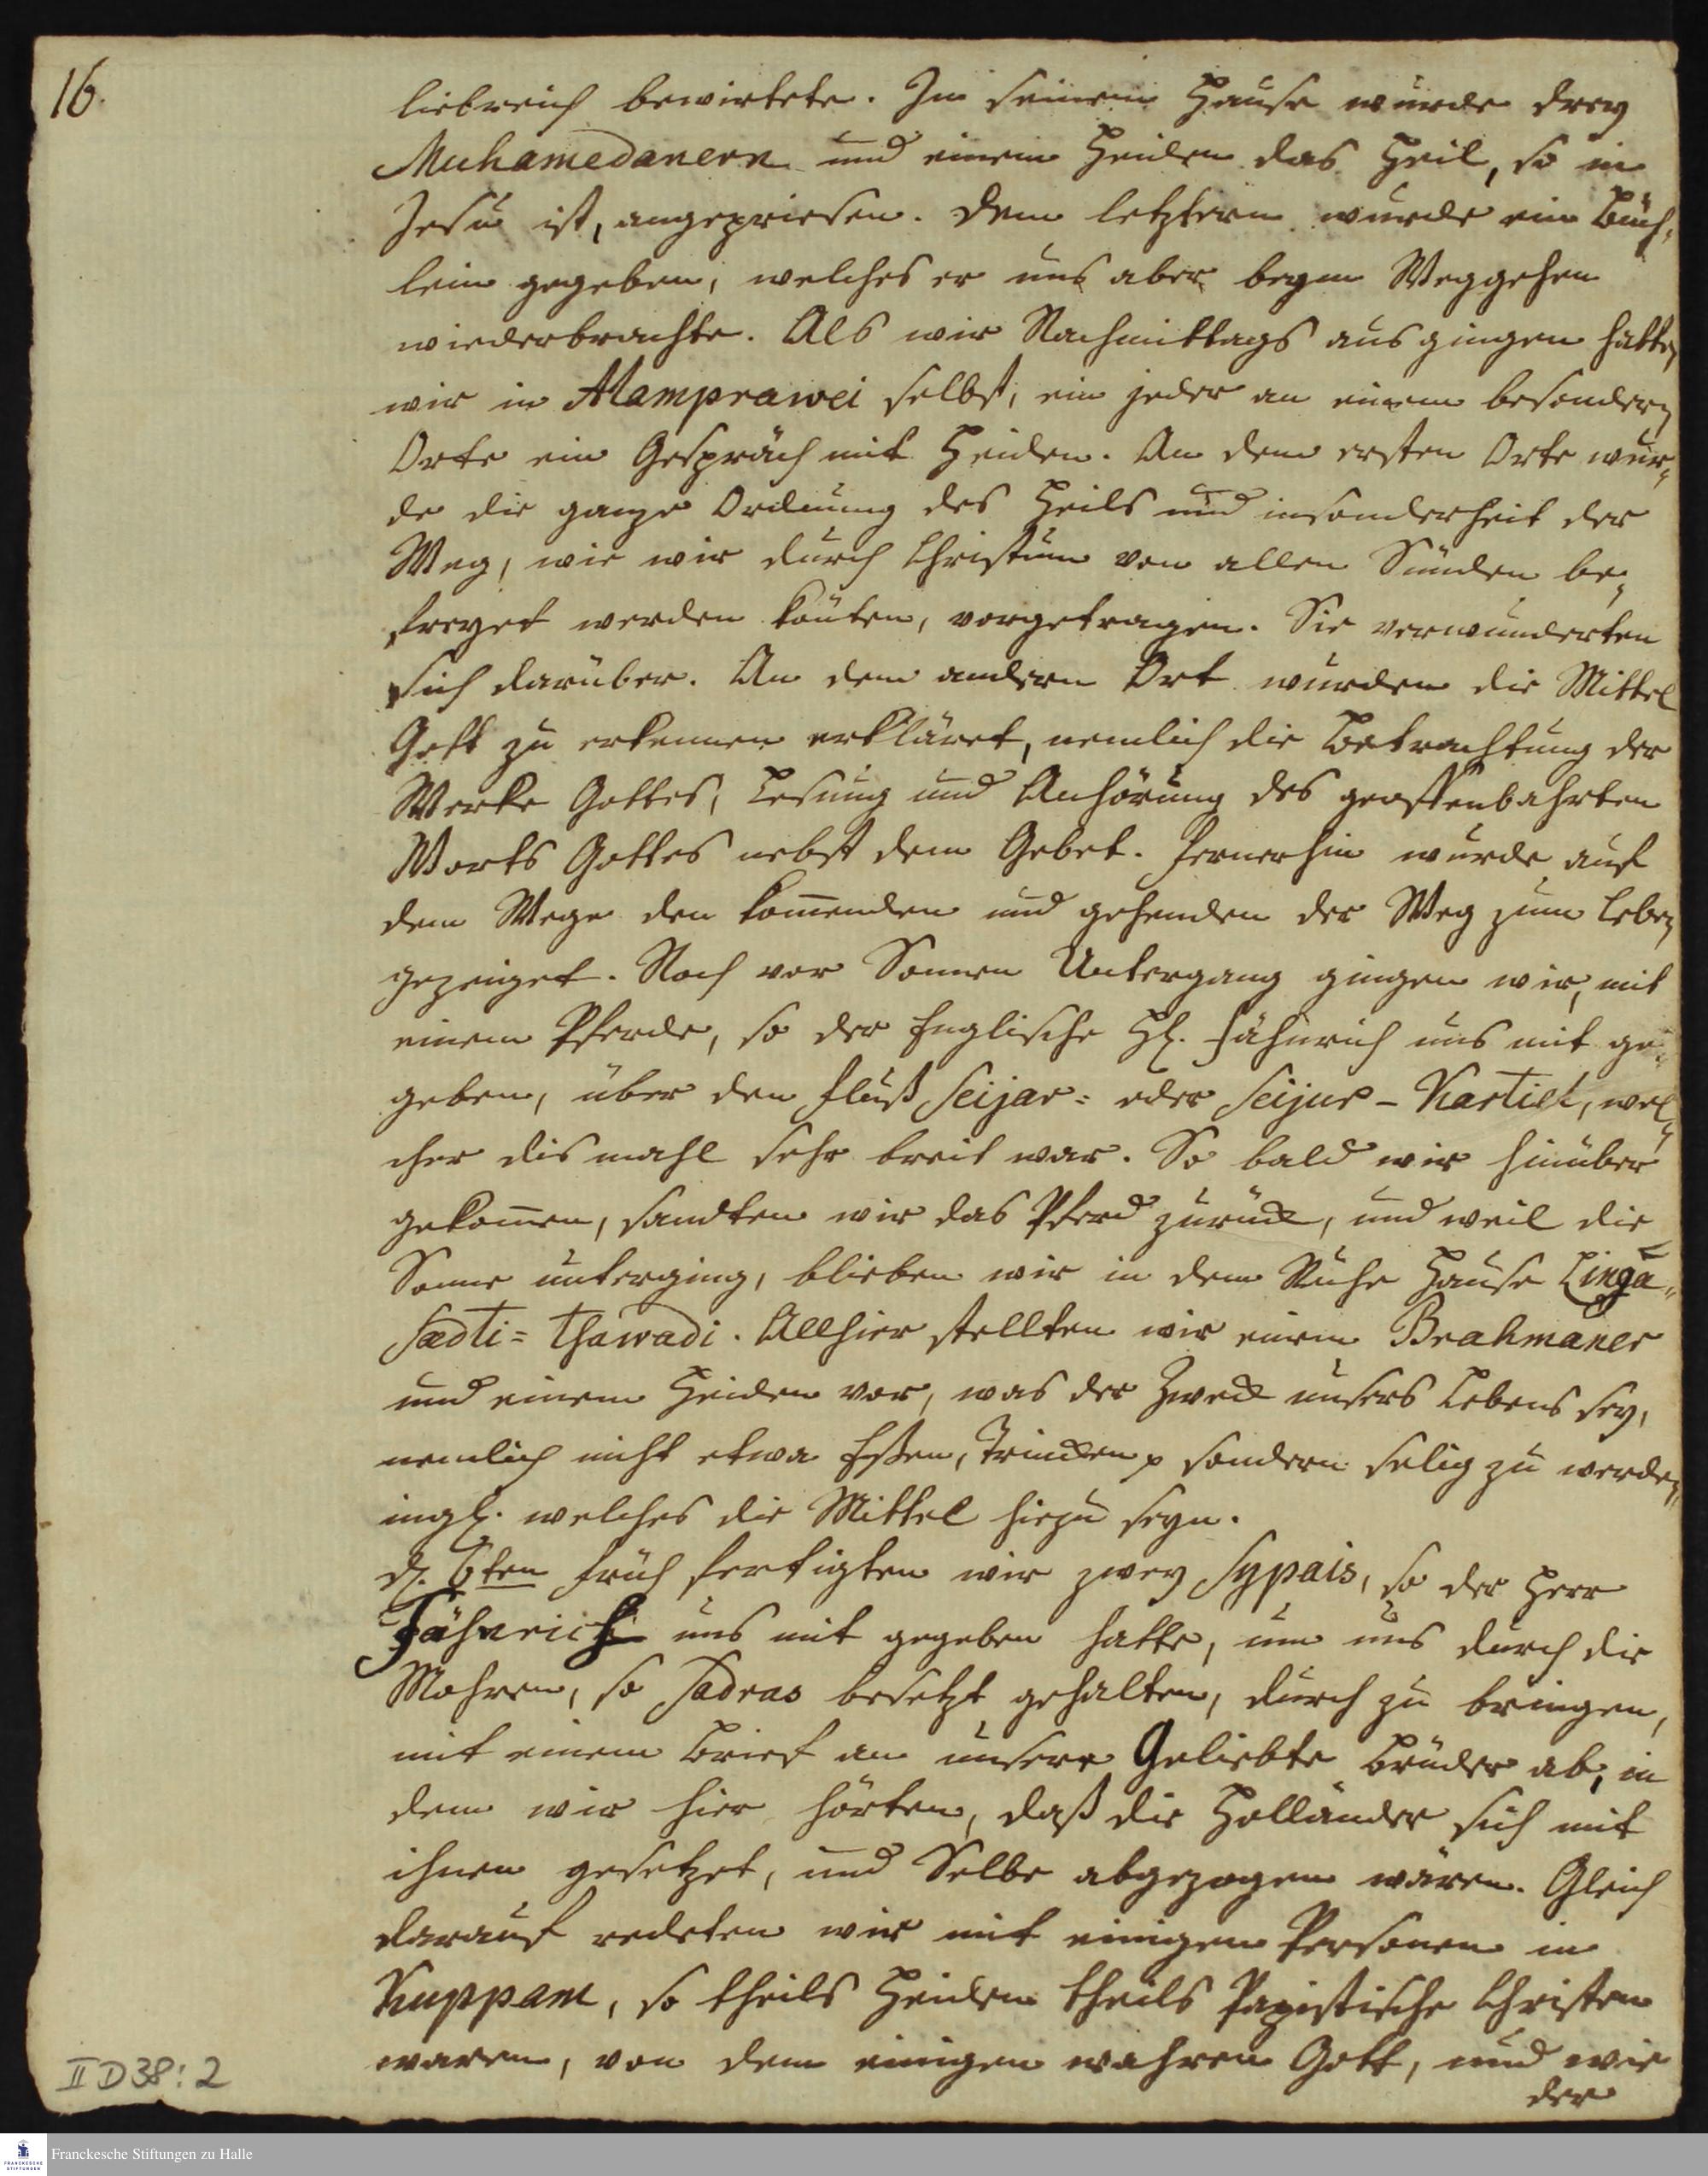 16.
liebreich bewirtete. In seinem Hause wurde drey
Muhamedanern und einem Heiden das Heil, so in
Jesu ist, angepriesen. Dem letztern wurde ein Büch„
lein gegeben, welches er uns aber beym Weggehen
wiederbrachte. Als wir Nachmittags ausgingen hatten
wir in Alamprawei selbst, ein jeder an einem besondern
Orte ein Gespräch mit Heiden. An dem ersten Orte wur„
de die ganze Ordnung des Heils und insonderheit der
Weg, wie wir durch Christum von allen Sünden be„
freyet werden könten, vorgetragen. Sie verwunderten
sich darüber. An dem andern Ort wurden die Mittel
Gott zu erkennen erkläret, nemlich die Betrachtung der
Werke Gottes, Lesung und Anhörung des geoffenbahrten
Worts Gottes nebst dem Gebet. Fernerhin wurde auf
dem Wege den kom̄enden und gehenden der Weg zum Leben
gezeiget. Noch vor Sonnen Untergang gingen wir, mit
einem Pferde, so der Englische H. Fähnrich uns mit ge„
geben, über den Fluß Seijar= oder Seijur-Kartiel, wel„
cher dis mahl sehr breit war. So bald wir hinüber
gekom̄en, sandten wir das Pferd zurück, und weil die
Sonne unterging, blieben wir in dem Ruhe Hause Linga„
sædti= Thawadi. Allhier stellten wir einem Brahmaner
und einem Heiden vor, was der Zweck unsers Lebens sey,
nemlich nicht etwa Eßen, Trincken p sondern selig zu werden,
ingl. welches die Mittel hiezu seyn.
d. 6ten früh fertigten wir zwey Sypais, so der Herr
Fähnrich uns mit gegeben hatte, um uns durch die
Mohren, so Sadras besetzt gehalten, durch zu bringen,
mit einem Brief an unsere Geliebte Brüder ab, in
dem wir hier hörten, daß die Holländer sich mit
ihnen gesetzet, und Selbe abgezogen wären. Gleich
darauf redeten wir mit einigen Personen in
Kuppam, so theils Heiden theils Papistische Christen
waren, von dem einigen wahren Gott, und wie
der
II D 38 : 2
FRANCKESCHE STIFTUNGEN
Franckesche Stiftungen zu Halle